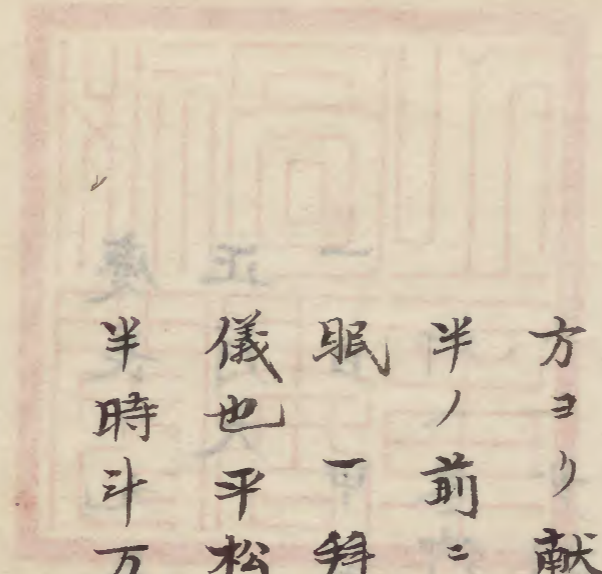 方ヨリ献
半ノ前ニ
眠一拜
儀也平松
半時斗万